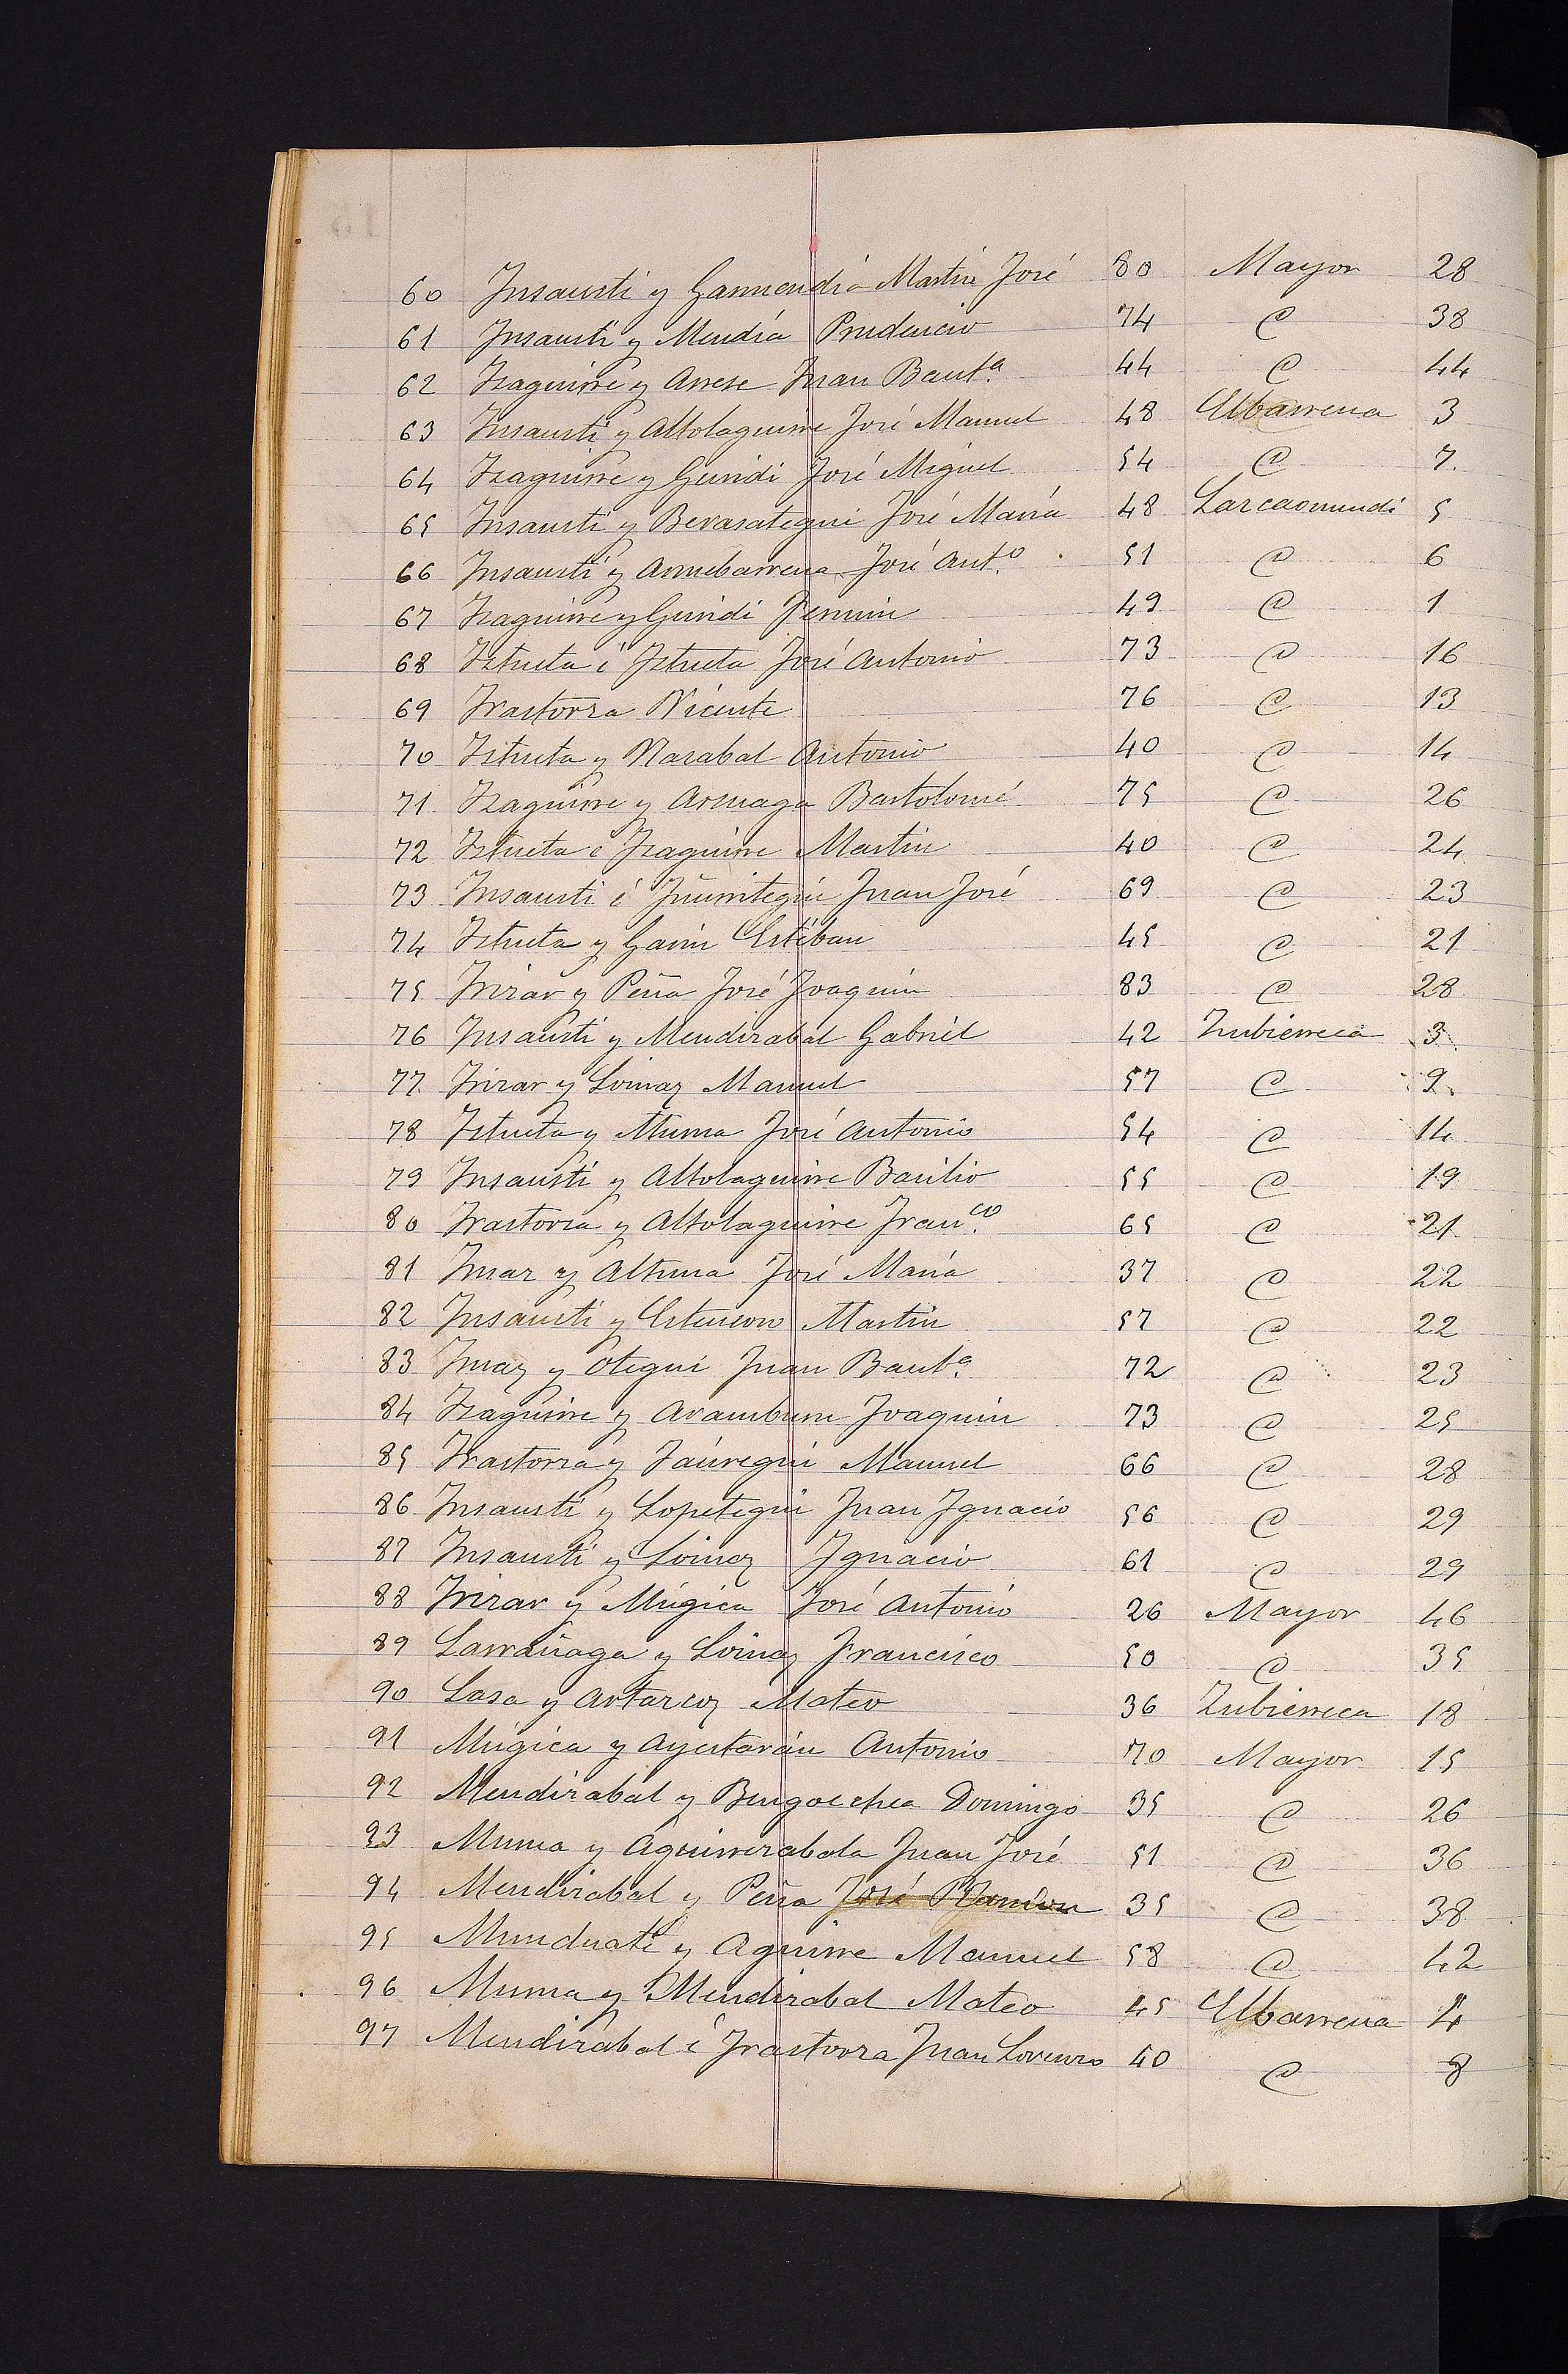 60 Insausti y Garmendia Martin José 80 Mayor 28
61 Insausti y Mendía Prudencio 74 @ 38
62 Izaguirre y Arrese Juan Baut.ª 44 @ 44
63 Insausti y Altolaguirre José Manuel 48 Elbarrena 3
64 Izaguirre y Guridi José Miguel 54 @ 7
65 Insausti y Berasategui José María 48 Larcaomundi 5
66 Insausti y Arruebarrena José Ant.º 51 @ 6
67 Izaguirre y Guridi Fermin 49 @ 1
68 Iztueta é Iztueta José Antonio 73 @ 16
69 Irastorza Vicente 76 @ 13
70 Iztueta y Narabal Antonio 40 @ 14
71 Izaguirre y Aramaga Bartolomé 75 @ 26
72 Iztueta é Izaguirre Martin 40 @ 24
73 Insausti é Iñurritegui Juan José 69 @ 23
74 Iztueta y Garin Estéban 45 @ 21
75 Irizar y Peña José Joaquin 83 @ 28
76 Insausti y Mendizabal Gabriel 42 Zubierreca 3
77 Irizar y Loinaz Manuel 57 @ 9
78 Iztueta y Munoa José Antonio 54 @ 14
79 Insausti y Altolaguirre Basilio 55 @ 19
80 Irastorza y Altolaguirre Fran.co 65 @ 21
81 Imaz y Altuna José María 37 @ 22
82 Insausti y Estensoro Martin 57 @ 22
83 Imaz y Otegui Juan Baut.ª 72 @ 23
84 Izaguirre y Aramburu Joaquin 73 @ 25
85 Irastorza y Jáuregui Manuel 66 @ 28
86 Insausti y Lopetegui Juan Ignacio 56 @ 29
87 Insausti y Loinaz Ignacio 61 @ 29
88 Irizar y Múgica José Antonio 26 Mayor 46
89 Larrañaga y Loinaz Francisco 50 @ 35
90 Lasa y Artarcoz Mateo 36 Zubierreca 18
91 Múgica y Ayestarán Antonio 70 Mayor 15
92 Mendizabal y Bengoechea Domingo 35 @ 26
93 Munoa y Aguirrezabala Juan José 51 @ 36
94 Mendizabal y Peña José Ramon 35 @ 38
95 Munduate y Aguirre Manuel 58 @ 42
96 Munoa y Mendizabal Mateo 45 Elbarrena 4
97 Mendizabal é Irastorza Juan Lorenzo 40 @ 8